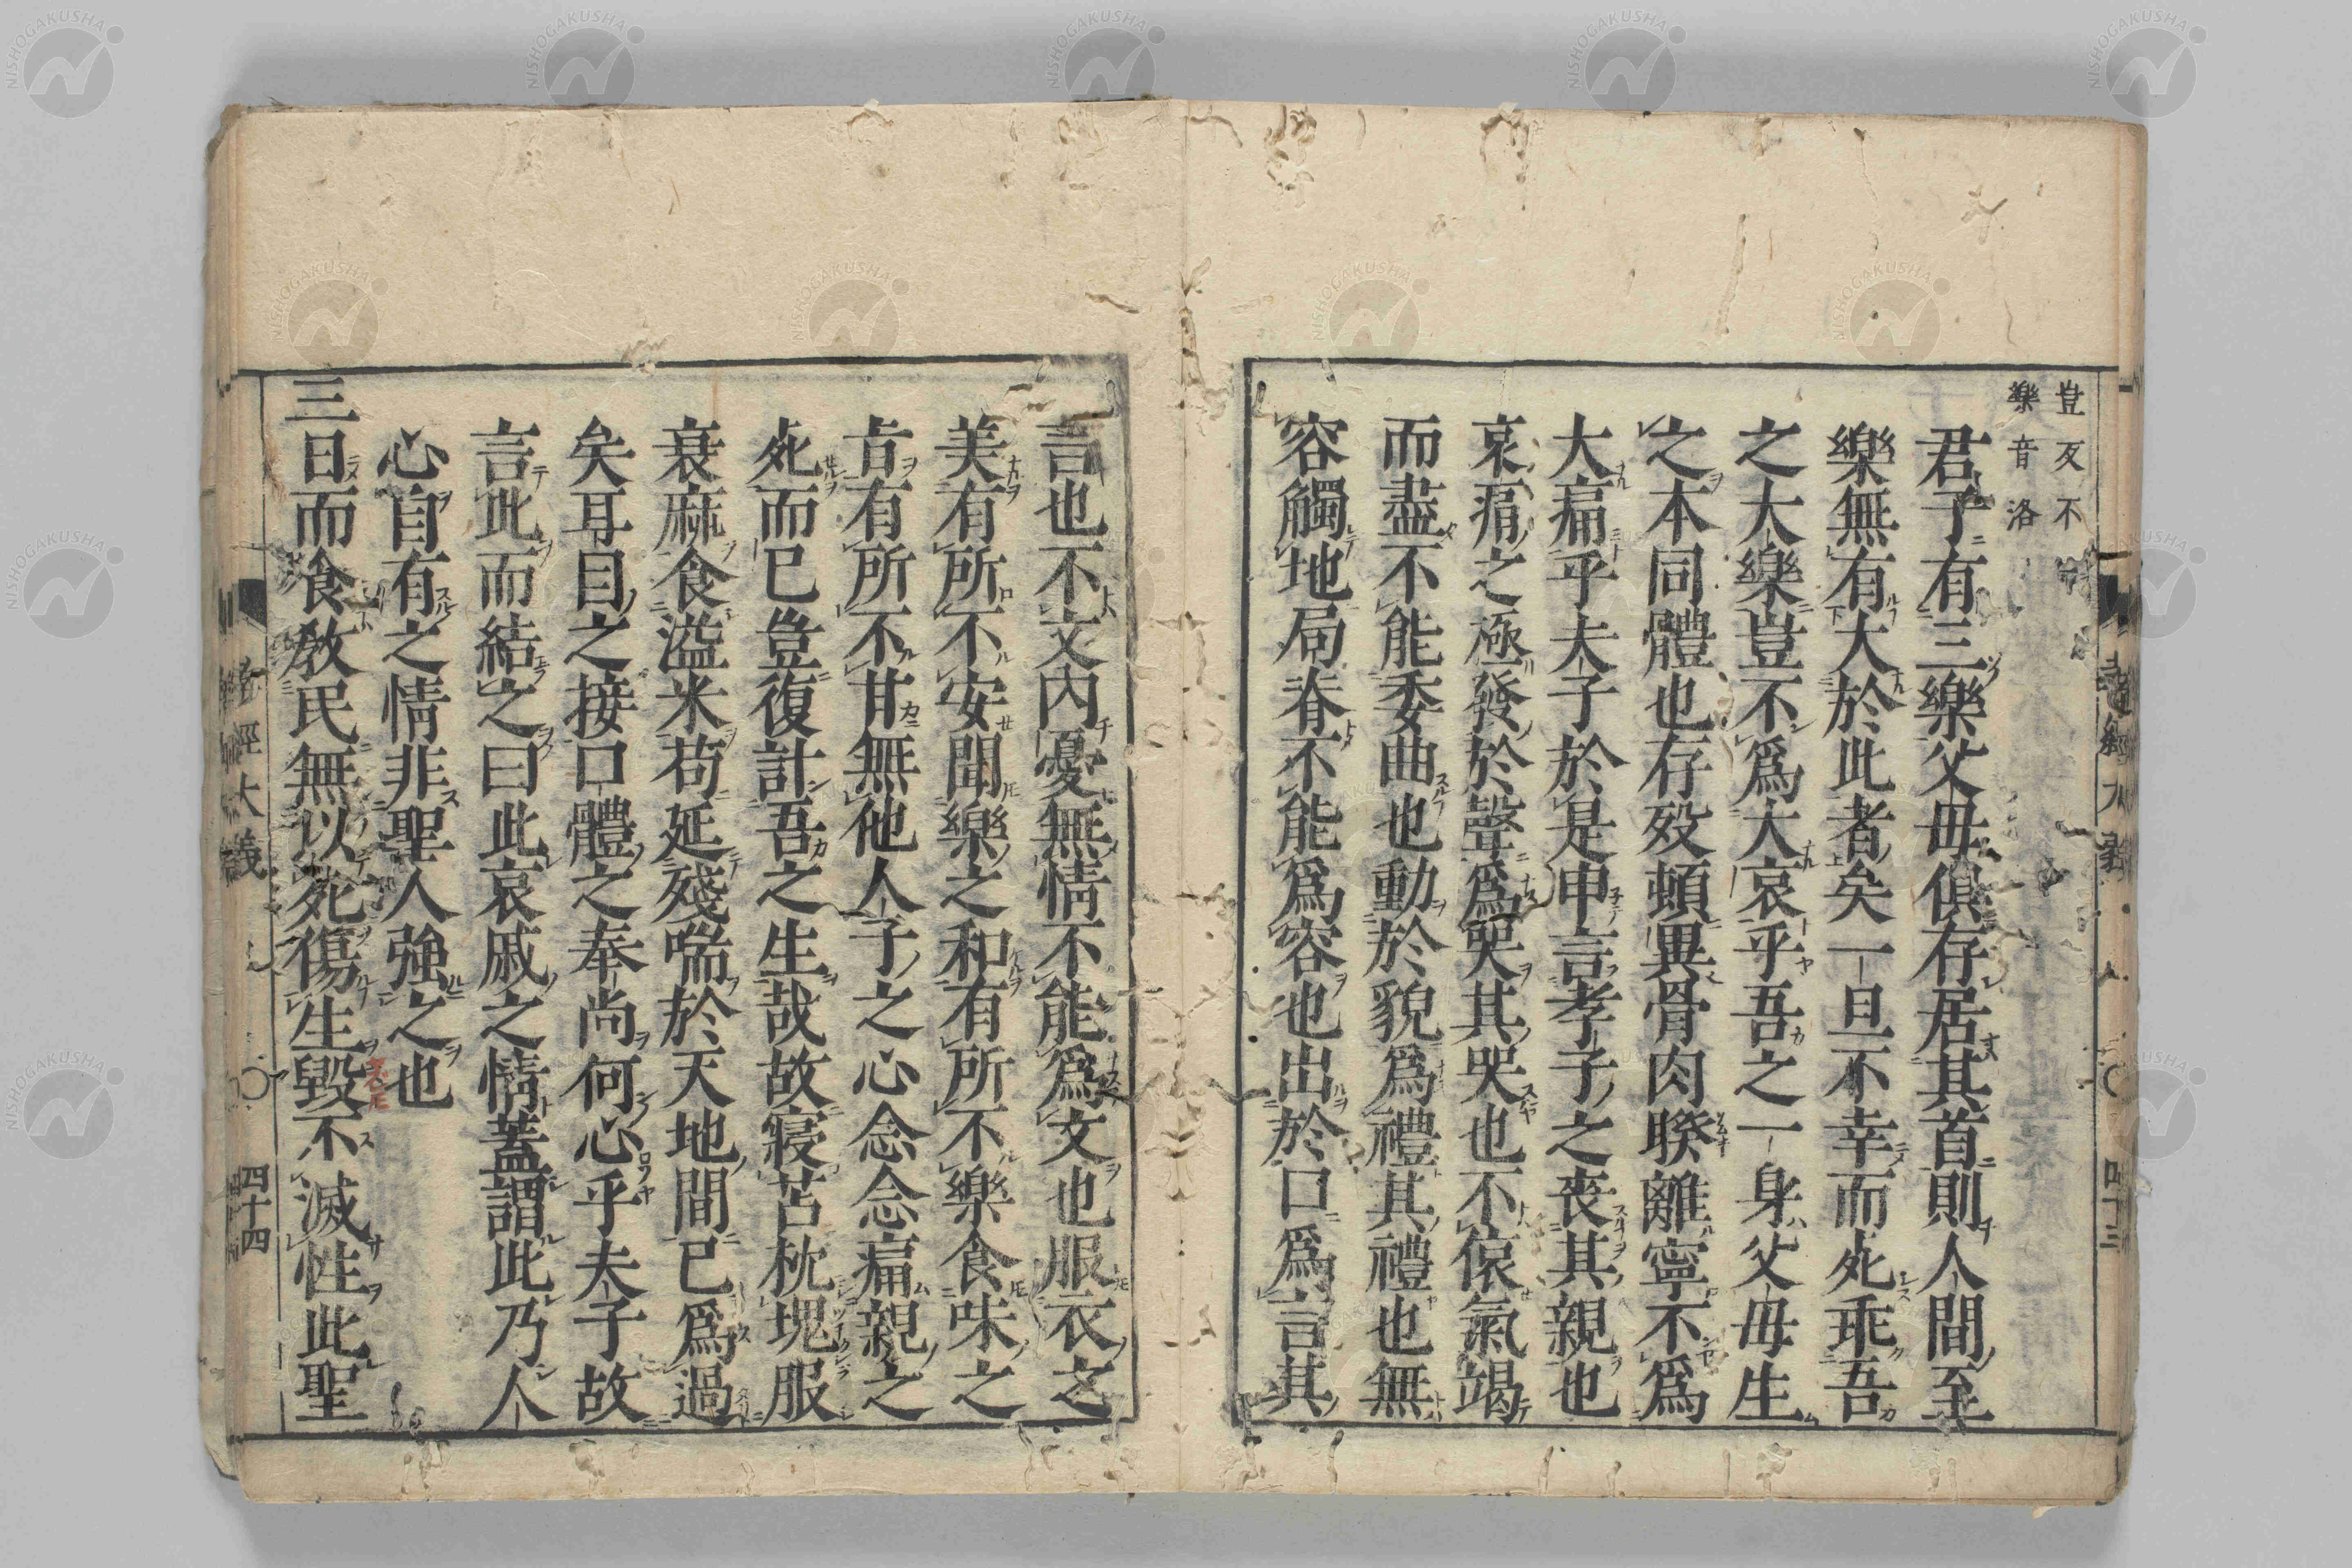 豈反不
樂音洛
君子有三樂父母俱存居其首則人間至
樂無有大於此者矣一旦不幸而死乖吾
之大樂豈不爲大哀乎吾之一身父母生
之本同體也存歿頓異骨肉睽離寧不爲
大痛乎夫子於是申言孝子之喪其親也
哀痛之極發於聲爲哭其哭也不偯氣竭
而盡不能委曲也動於貌爲禮其禮也無
容觸地局脊不能爲容也出於口爲言其
言也不文內憂無情不能爲文也服衣之
美有所不安聞樂之和有所不樂食味之
旨有所不甘無他人子之心念念痛親之
死而已豈復計吾之生哉故寢苫枕塊服
衰麻食溢米苟延殘喘於天地間已爲過
矣耳目之接口體之奉尚何心乎夫子故
言此而結之曰此哀戚之情蓋謂此乃人
心自有之情非聖人強之也
三日而食敎民無以死傷生毀不滅性此聖
經大義
四十四